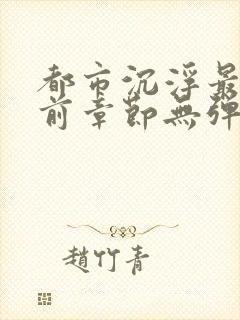 都市沉浮最
前章節無彈
趙竹青